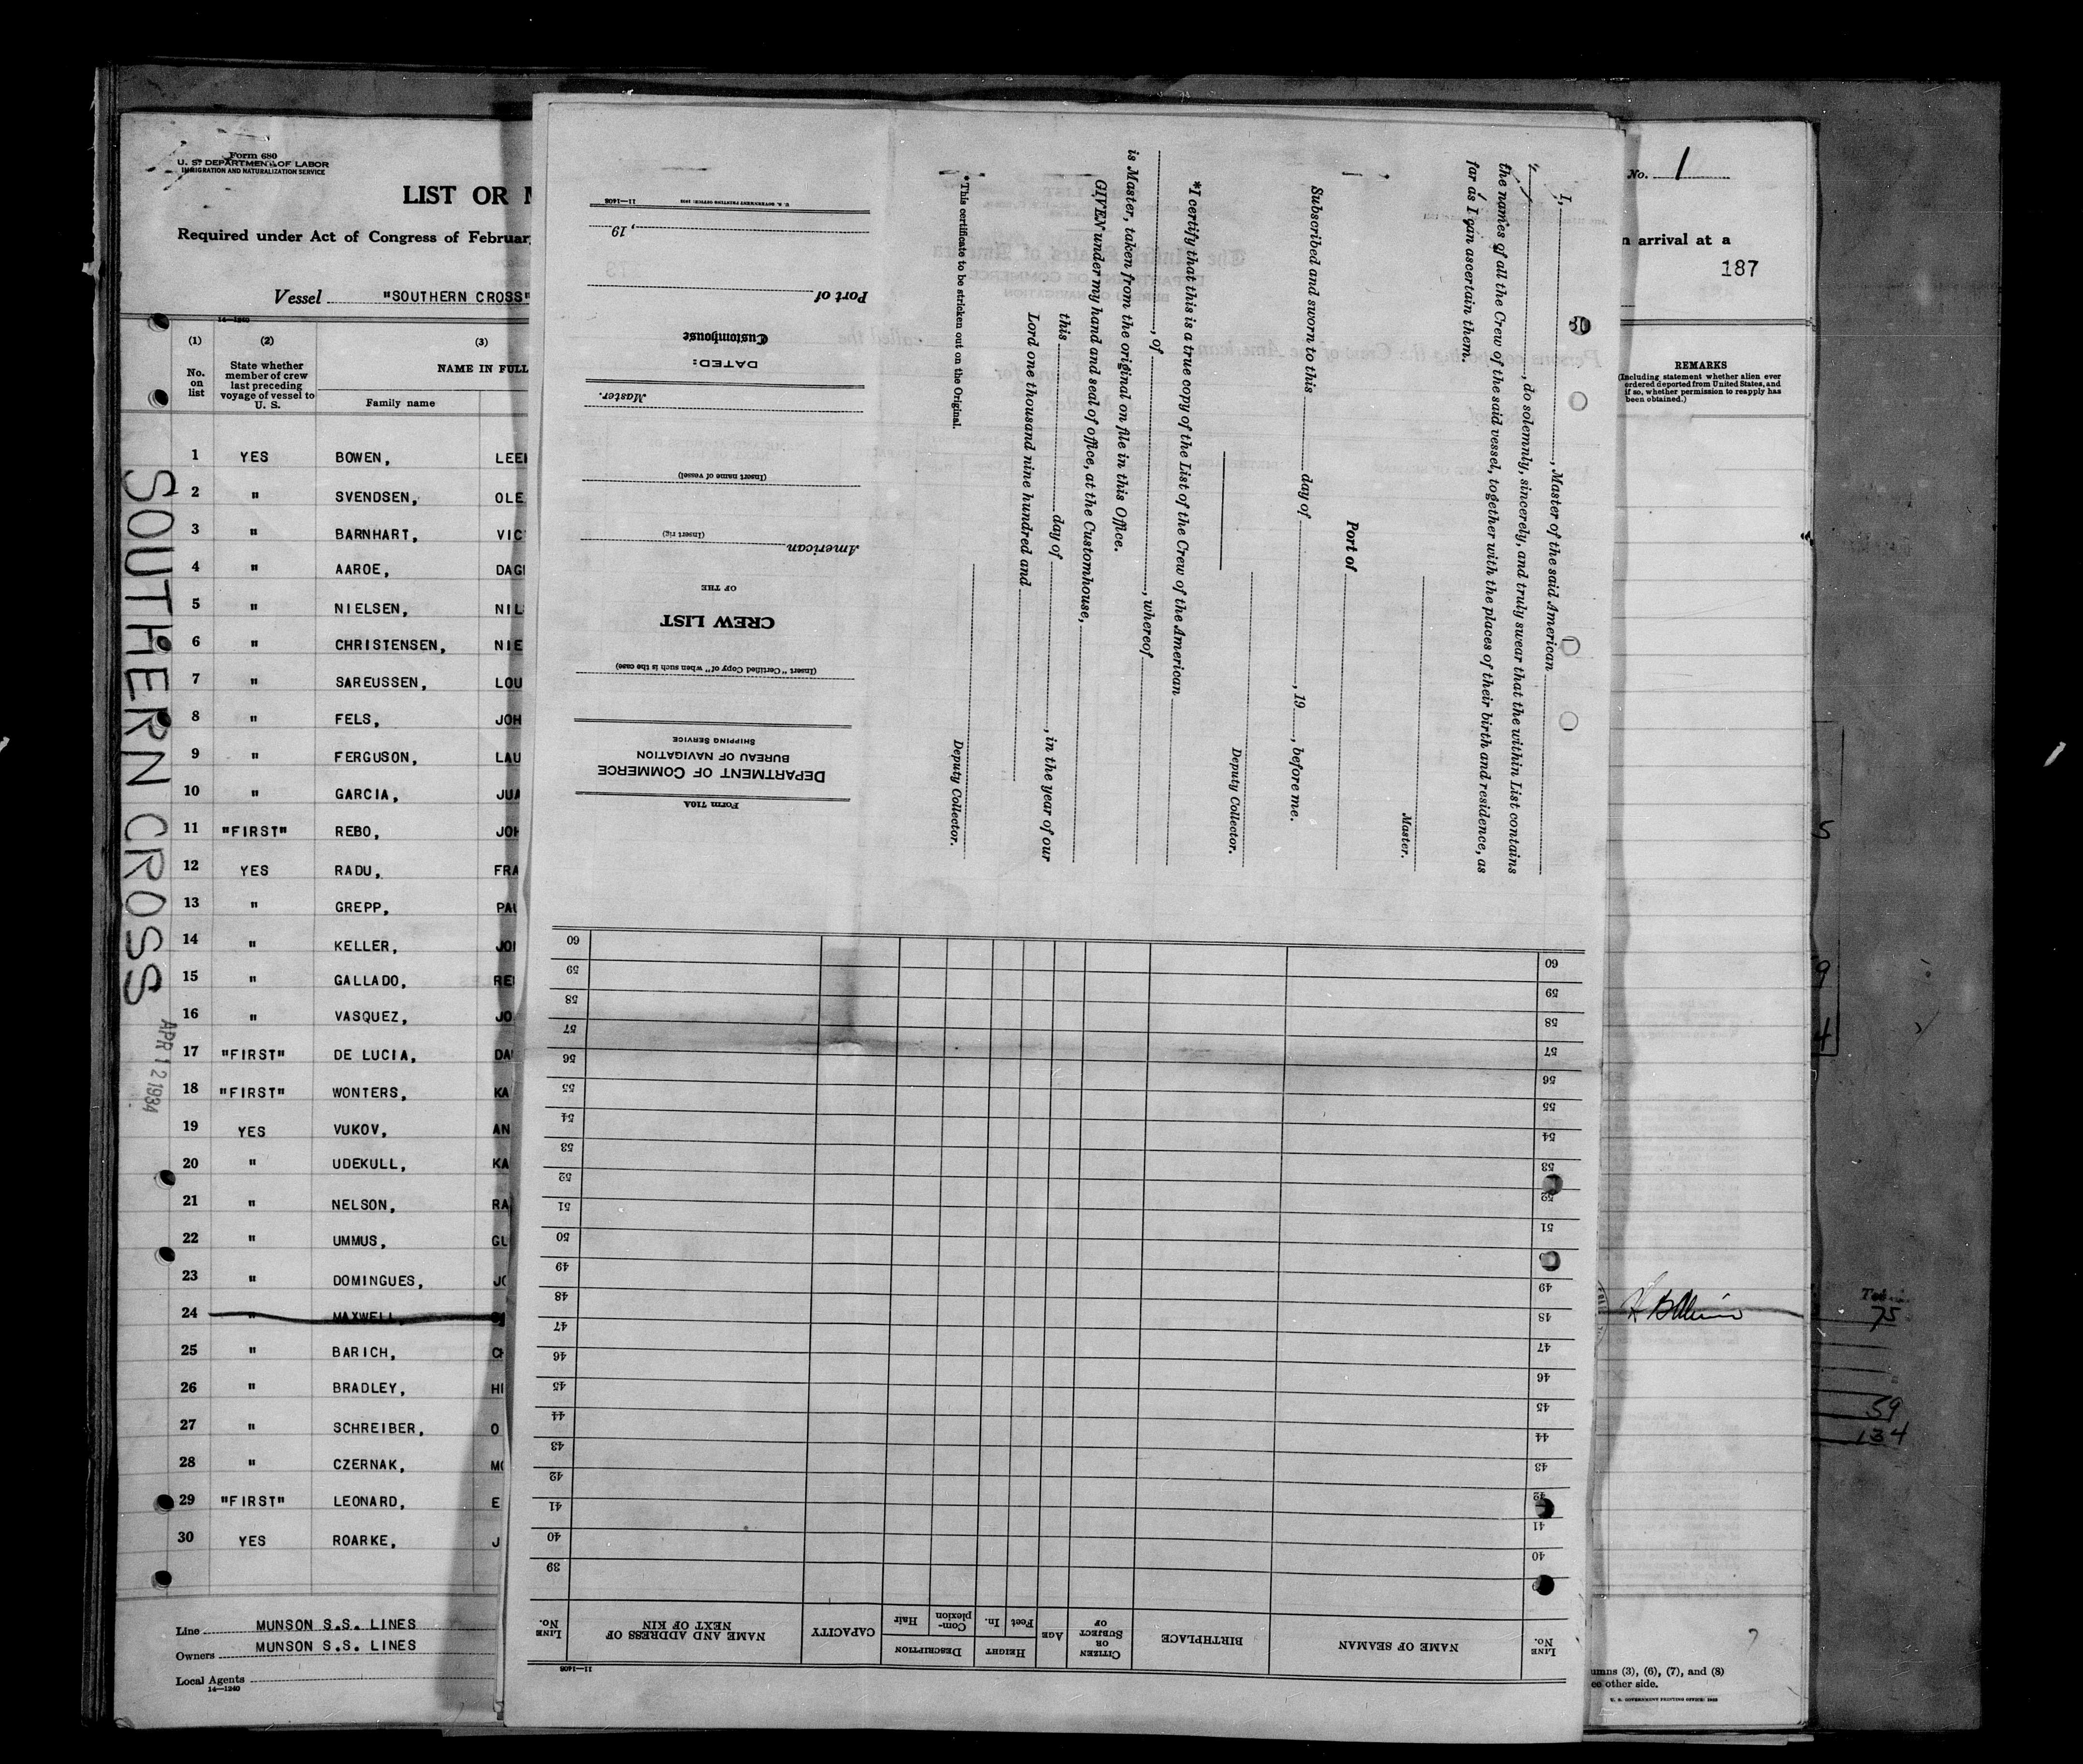 Form 680
U. S. DEPARTMENT OF LABOR
IMMIGRATION AND NATURALIZATION SERVICE
LIST OR
Required under Act of Congress of Februar
Vessel "SOUTHERN CROSS"
14—1240
(1) (2) (3)
No. on list
State whether member of crew last preceding voyage of vessel to U. S.
NAME IN FULL
Family name
1 YES BOWEN, LEE
2 " SVENDSEN, OLE
3 " BARNHART, VIC
4 " AAROE, DAG
5 " NIELSEN, NIL
6 " CHRISTENSEN, NIE
7 " SAREUSSEN, LOU
8 " FELS, JOH
9 " FERGUSON, LAU
10 " GARCIA, JUA
11 "FIRST" REBO, JOH
12 YES RADU, FRA
13 " GREPP, PAU
14 " KELLER, JO
15 " GALLADO, RE
16 " VASQUEZ, JO
17 "FIRST" DE LUCIA, DA
18 "FIRST" WONTERS, KA
19 YES VUKOV, AN
20 " UDEKULL, KA
21 " NELSON, RA
22 " UMMUS, GU
23 " DOMINGUES, JO
24 " MAXWELL,
25 " BARICH, CH
26 " BRADLEY, HI
27 " SCHREIBER, O
28 " CZERNAK, MO
29 "FIRST" LEONARD, E
30 YES ROARKE, J
Line MUNSON S.S. LINES
Owners MUNSON S.S. LINES
Local Agents
14—1240
SOUTHERN CROSS
APR 12 1934
I, , Master of the said American
, do solemnly, sincerely, and truly swear that the within List contains
the names of all the Crew of the said vessel, together with the places of their birth and residence, as
far as I can ascertain them.
Master.
Port of
Subscribed and sworn to this day of , 19 , before me.
Deputy Collector.
*I certify that this is a true copy of the List of the Crew of the American
, of , whereof
is Master, taken from the original on file in this Office.
GIVEN under my hand and seal of office, at the Customhouse,
this day of , in the year of our
Lord one thousand nine hundred and
Deputy Collector.
*This certificate to be stricken out on the Original.
Form 710A
DEPARTMENT OF COMMERCE
BUREAU OF NAVIGATION
SHIPPING SERVICE
(Insert "Certified Copy of" when such is the case)
CREW LIST
OF THE
American
(Insert rig)
(Insert name of vessel)
Master.
DATED:
Customhouse
Port of
, 19
U. S. GOVERNMENT PRINTING OFFICE: 11—1408
11—1408
LINE No.
NAME OF SEAMAN
BIRTHPLACE
CITIZEN OR SUBJECT OF
AGE
HEIGHT
Feet
In.
DESCRIPTION
Complexion
Hair
CAPACITY
NAME AND ADDRESS OF NEXT OF KIN
LINE No.
39
40 40
41 41
42 42
43 43
44 44
45 45
46 46
47 47
48 48
49 49
50
51 51
52 52
53 53
54 54
55 55
56 56
57 57
58 58
59 59
60 60
No. 1
n arrival at a
187
REMARKS
(Including statement whether alien ever ordered deported from United States, and if so, whether permission to reapply has been obtained.)
5
9
4
75
59
134
umns (3), (6), (7), and (8)
ee other side.
U. S. GOVERNMENT PRINTING OFFICE: